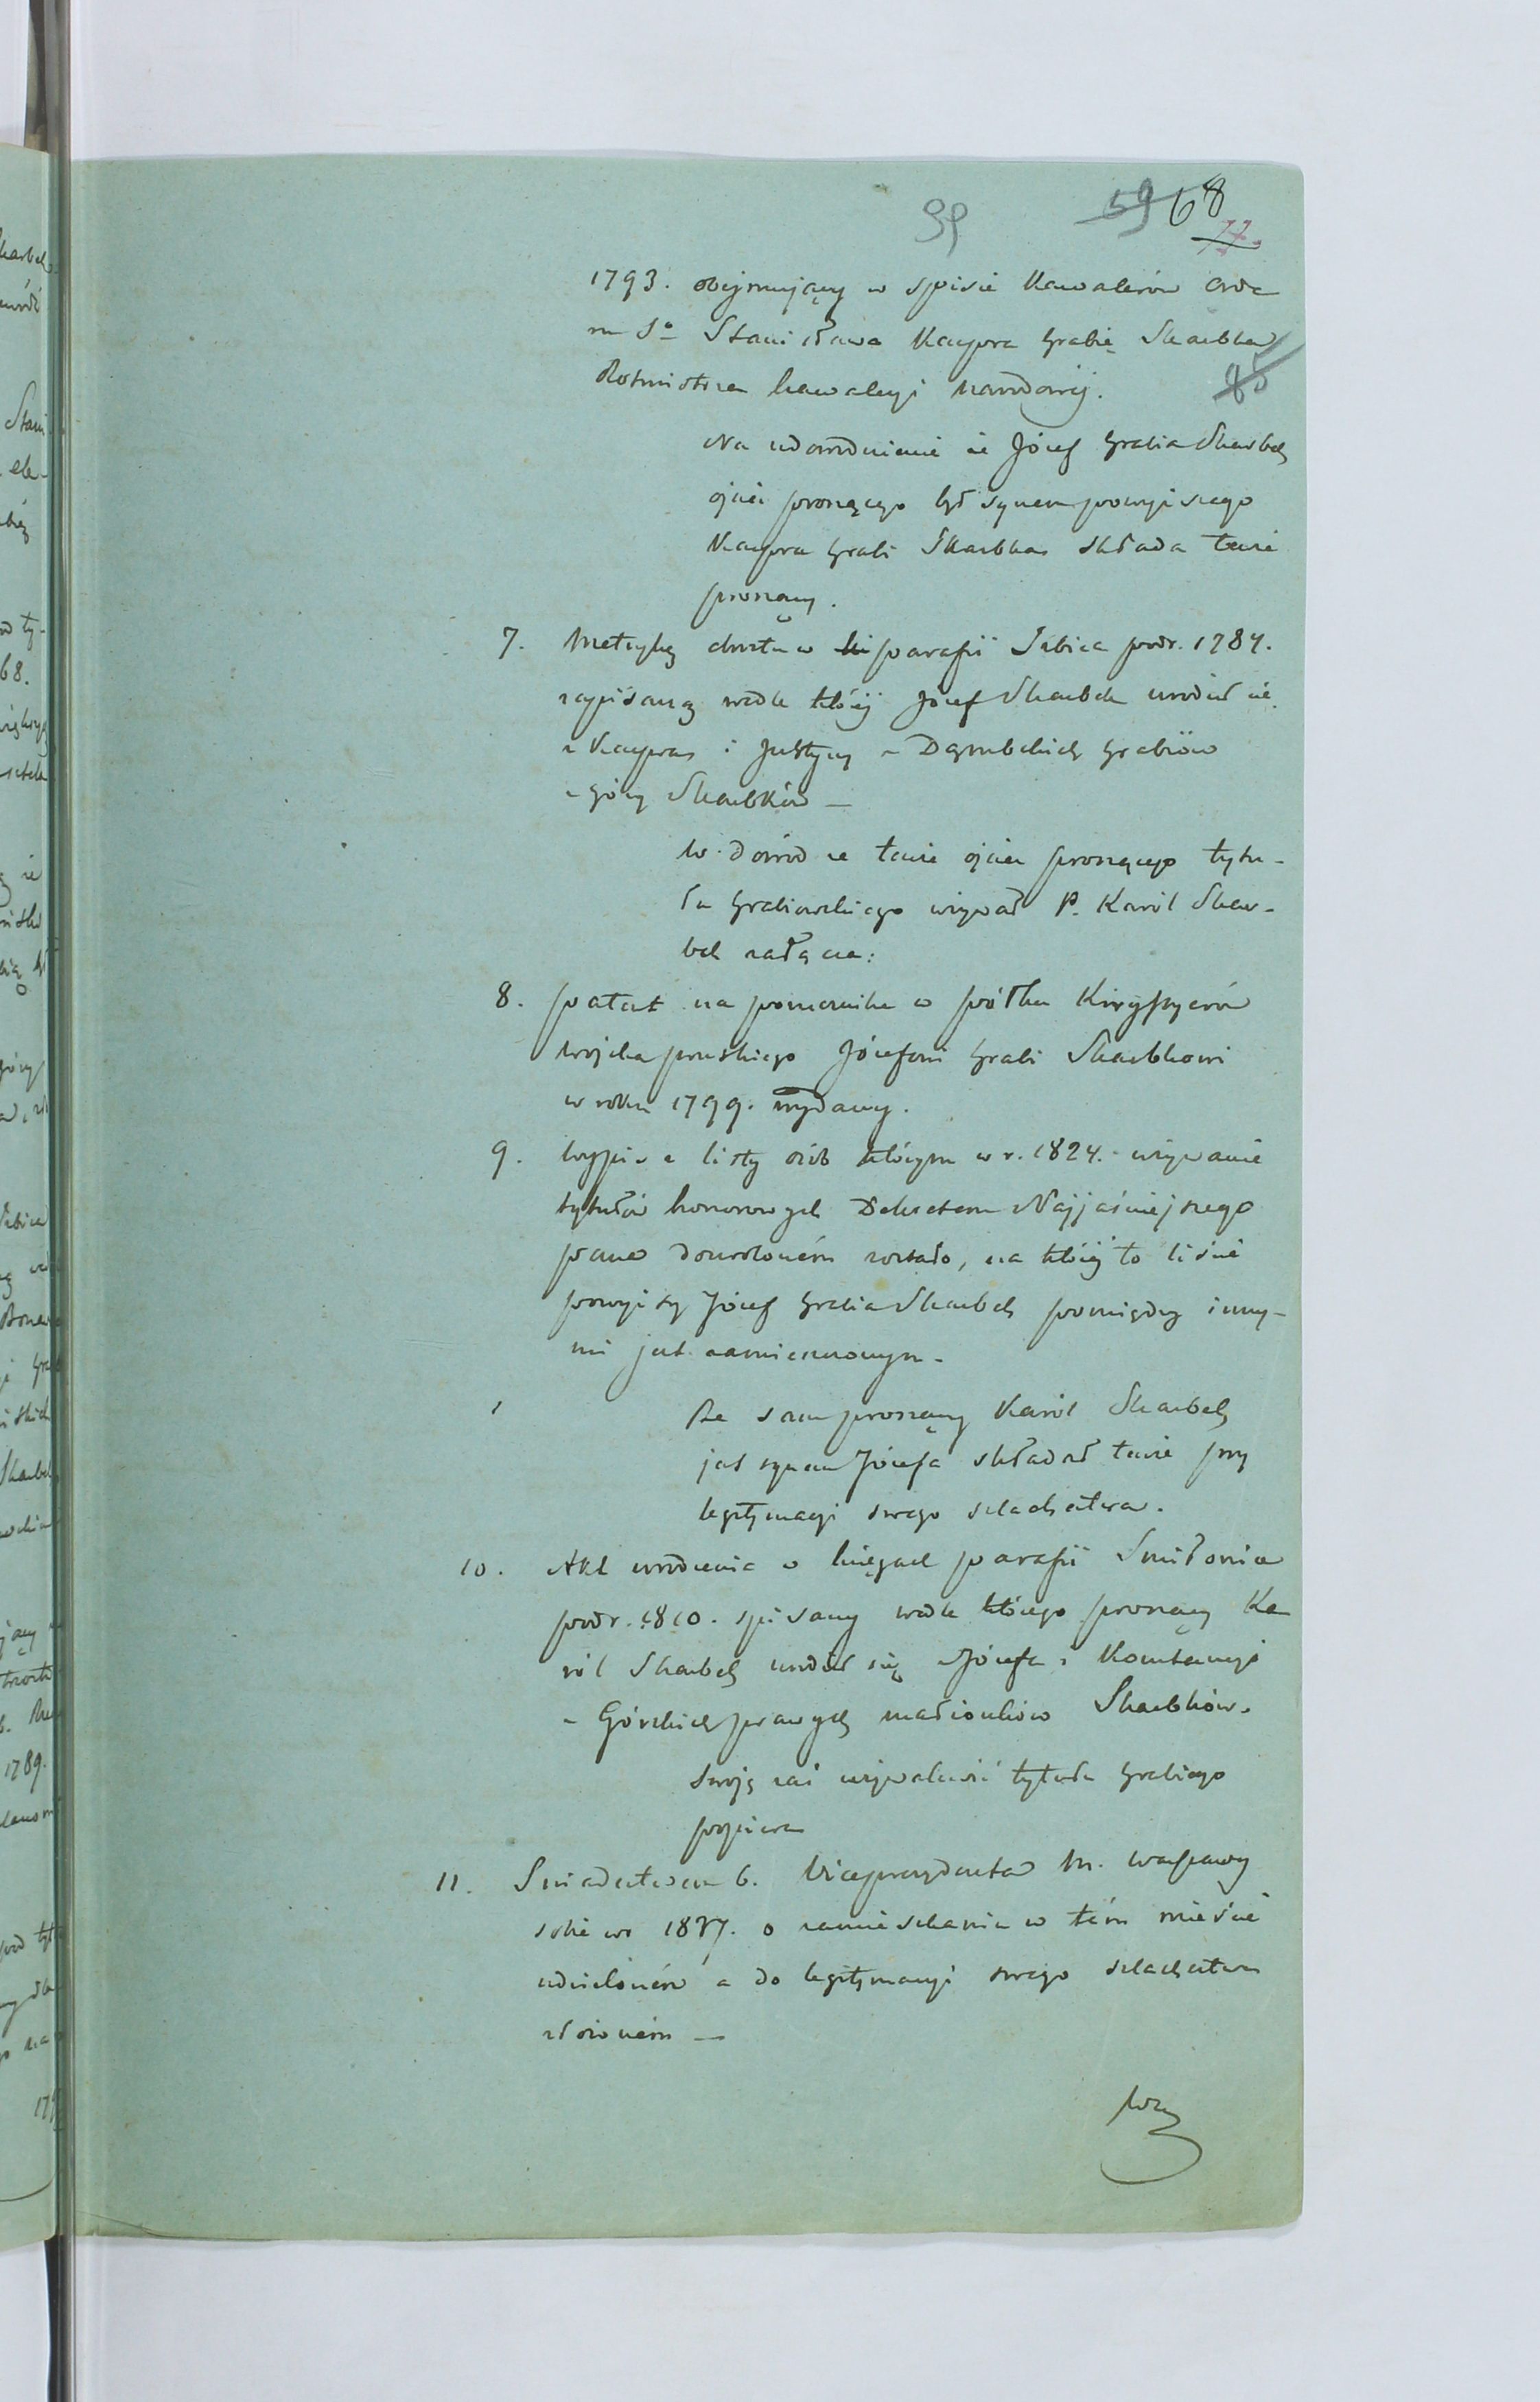 59 68
1793. obejmujący w spisie Kawalerów Orde
ru Sº Stanisława Kacpra Grabię Skarbka
Rotmistrza kawalerji narodowéj.
85
Na udowodnienie że Józef Grabia Skarbek
ojciec proszącego był synem powyższego
Kacpra Grabi Skarbka składa tenże
proszący.
7. Metrykę chrztu w parafii Izbica pod r. 1784.
zapisaną wedle któréj Józef Skarbek urodził się
z Kacpra i Justyny z Dąmbskich Grabiów
z góry Skarbków —
W dowód że tenże ojciec proszącego tytu-
łu Grabiowskiego używał P. Karól Skar-
bek załącza:
8. patent na porucznika w półku Kirysyerów
wojska pruskiego Józefowi Grabi Skarbkowi
w roku 1799. wydany.
9. Wypis z listy osób którym w r. 1824. używanie
tytułów honorowych Dekretem Najjaśniejszego
pana dozwoloném zostało, na któréj to liście
powyższy Józef Grabia Skarbek pomiędzy inny-
mi jest zamieszczonym.
Że sam proszący Karól Skarbek
jest synem Józefa składał tenże przy
legitymacji swego szlachectwa.
10. Akt urodzenia w księgach parafii Śmiłowice
pod r. 1810. spisany wedle którego proszący Ka
ról Skarbek urodził się z Józefa i Konstancyi
z Górskich prawych małżonków Skarbków.
Swoję zaś używalność tytułu Grabiego
popiera
11. Świadectwem b. Viceprezydenta M. Warszawy
sobie w r 1837. o zamieszkaniu w tém mieście
udzieloném a do legitymacyi swego szlachectwa
złożoném —